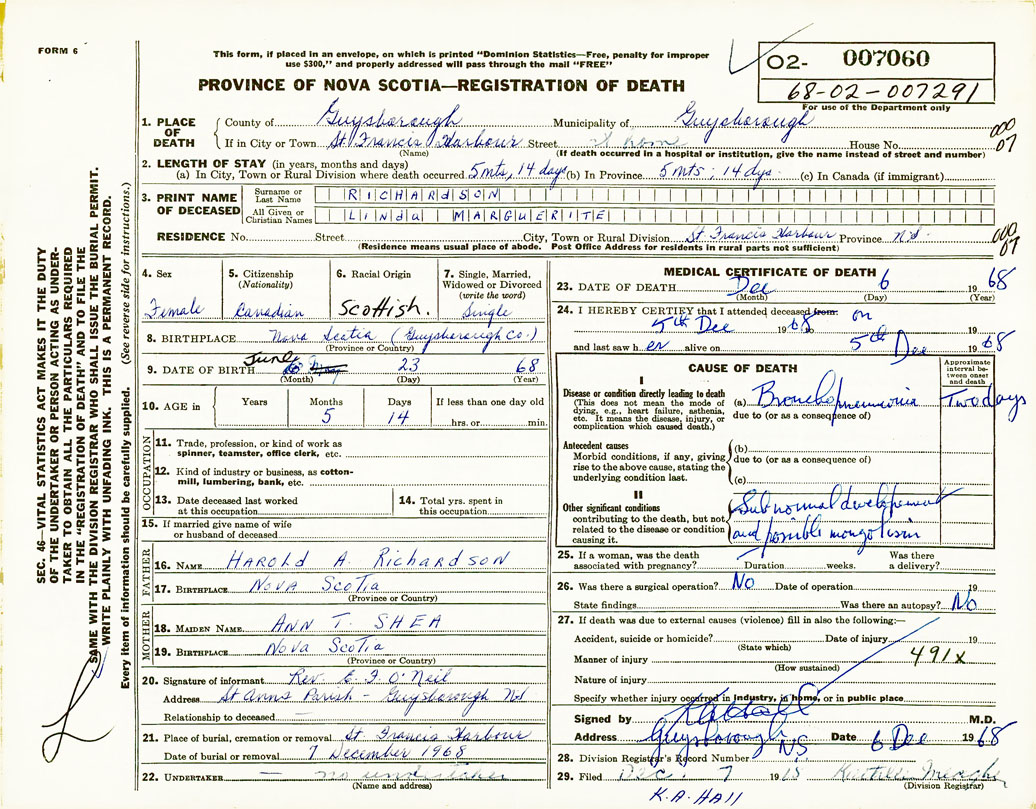 FORM 6
This form, if placed in an envelope, on which is printed "Dominion Statistics—Free, penalty for improper
use $300," and properly addressed will pass through the mail "FREE"
PROVINCE OF NOVA SCOTIA—REGISTRATION OF DEATH
02- 007060
68-02-007291
For use of the Department only
1. PLACE OF DEATH
County of Guysborough Municipality of Guysborough
If in City or Town St Francis Harbour Street at home House No.
(Name) (If death occurred in a hospital or institution, give the name instead of street and number)
000
07
2. LENGTH OF STAY (in years, months and days)
(a) In City, Town or Rural Division where death occurred 5 mts, 14 days (b) In Province 5 mts; 14 dys. (c) In Canada (if immigrant)
3. PRINT NAME OF DECEASED
Surname or Last Name RICHARDSON
All Given or Christian Names LINda MARGUERITE
RESIDENCE No. Street City, Town or Rural Division St Francis Harbour Province N.S.
(Residence means usual place of abode. Post Office Address for residents in rural parts not sufficient)
000
07
4. Sex
Female
5. Citizenship
(Nationality)
Canadian
6. Racial Origin
Scottish.
7. Single, Married,
Widowed or Divorced
(write the word)
Single
8. BIRTHPLACE Nova Scotia (Guysborough Co.)
(Province or Country)
9. DATE OF BIRTH June 23 68
(Month) (Day) (Year)
10. AGE in
Years Months Days If less than one day old
5 14 hrs. or min.
OCCUPATION
11. Trade, profession, or kind of work as
spinner, teamster, office clerk, etc.
12. Kind of industry or business, as cotton-
mill, lumbering, bank, etc.
13. Date deceased last worked
at this occupation
14. Total yrs. spent in
this occupation
15. If married give name of wife
or husband of deceased
FATHER
16. NAME HAROLD A. RICHARDSON
17. BIRTHPLACE NOVA SCOTIA
(Province or Country)
MOTHER
18. MAIDEN NAME ANN T. SHEA
19. BIRTHPLACE NOVA SCOTIA
(Province or Country)
20. Signature of informant Rev. E. J. O'Neil
Address St Anns Parish - Guysborough N.S.
Relationship to deceased —
21. Place of burial, cremation or removal St. Francis Harbour
Date of burial or removal 7 December 1968
22. UNDERTAKER — no undertaker
(Name and address)
MEDICAL CERTIFICATE OF DEATH
23. DATE OF DEATH Dec 6 19 68
(Month) (Day) (Year)
24. I HEREBY CERTIFY that I attended deceased from: on
5th Dec 1968
and last saw h er alive on 5th Dec 1968
CAUSE OF DEATH
Approximate
interval be-
tween onset
and death
I
Disease or condition directly leading to death
(This does not mean the mode of
dying, e.g., heart failure, asthenia,
etc. It means the disease, injury, or
complication which caused death.)
(a) Bronchopneumonia Two days
due to (or as a consequence of)
Antecedent causes
Morbid conditions, if any, giving
rise to the above cause, stating the
underlying condition last.
(b)
due to (or as a consequence of)
(c)
II
Other significant conditions
contributing to the death, but not
related to the disease or condition
causing it.
Subnormal developement
and possible mongolism
25. If a woman, was the death
associated with pregnancy? Duration weeks. Was there
a delivery?
26. Was there a surgical operation? No Date of operation 19
State findings Was there an autopsy? No
27. If death was due to external causes (violence) fill in also the following:—
Accident, suicide or homicide? Date of injury 19
(State which)
Manner of injury 491X
(How sustained)
Nature of injury
Specify whether injury occurred in industry, in home, or in public place
Signed by K A Hall M.D.
Address Guysborough NS Date 6 Dec 1968
28. Division Registrar's Record Number
29. Filed Dec. 7 1968 Kathleen
(Division Registrar)
K.A. HAll
SEC. 46—VITAL STATISTICS ACT MAKES IT THE DUTY
OF THE UNDERTAKER OR PERSON ACTING AS UNDER-
TAKER TO OBTAIN ALL THE PARTICULARS REQUIRED
IN THE "REGISTRATION OF DEATH" AND TO FILE THE
SAME WITH THE DIVISION REGISTRAR WHO SHALL ISSUE THE BURIAL PERMIT.
WRITE PLAINLY WITH UNFADING INK. THIS IS A PERMANENT RECORD.
Every item of information should be carefully supplied. (See reverse side for instructions.)